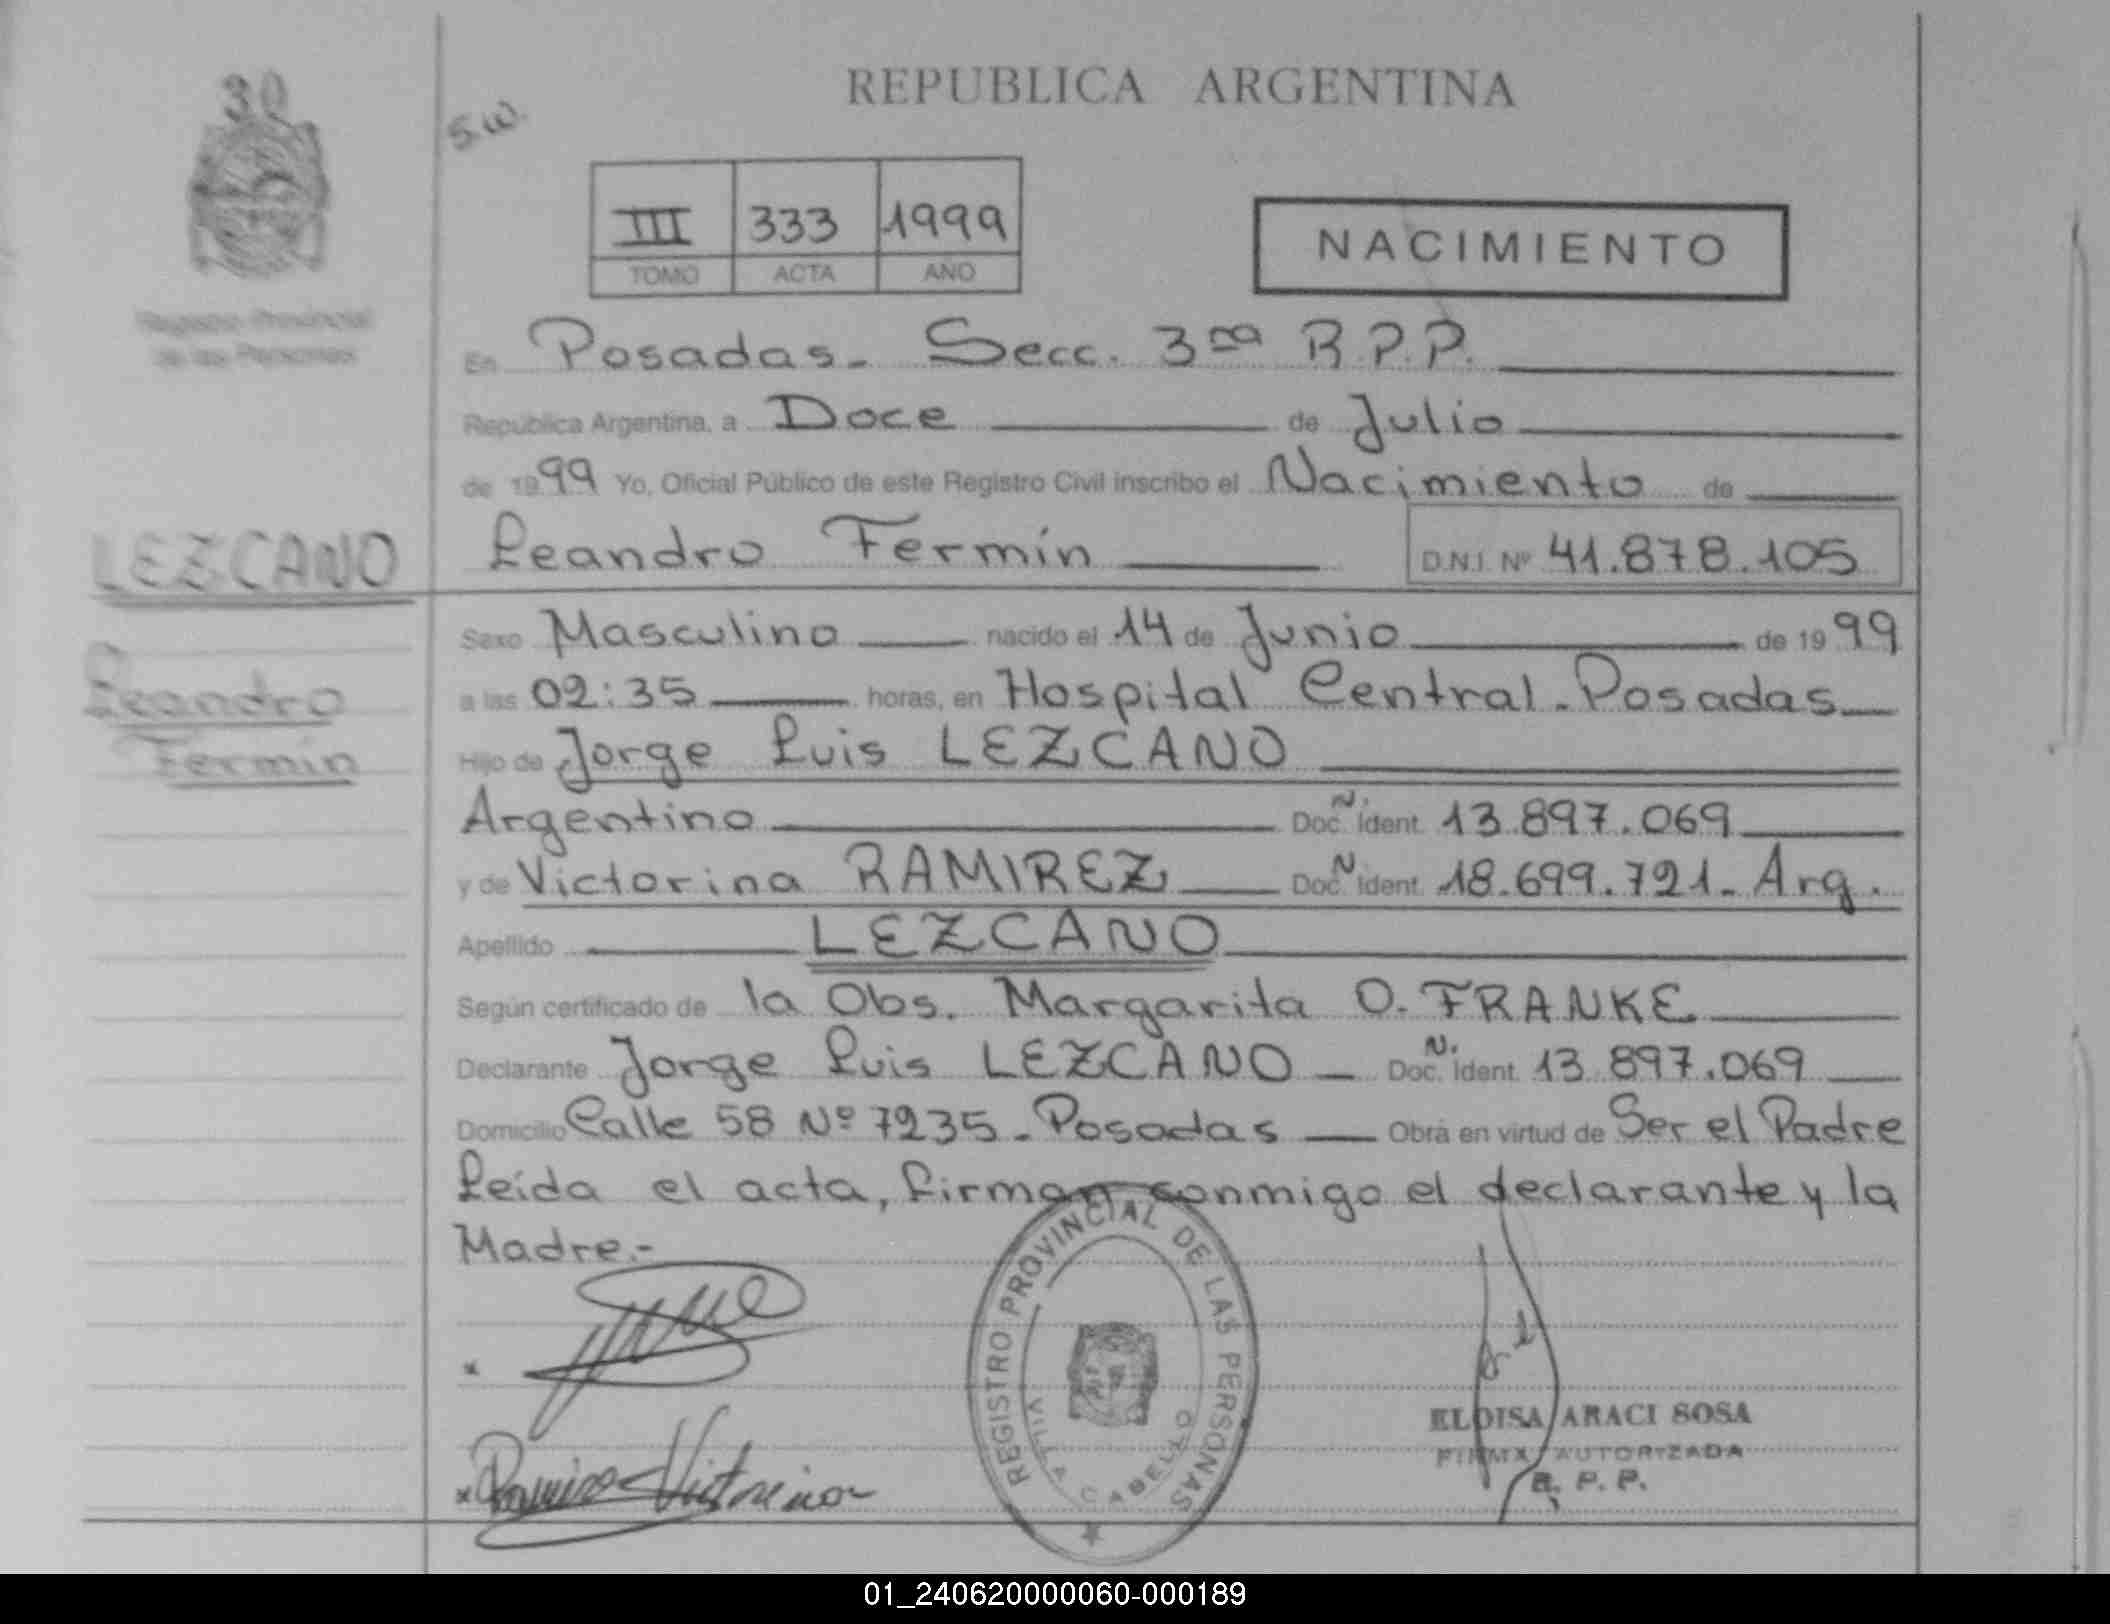 30
S.W.
REPUBLICA ARGENTINA
III 333 1999
TOMO ACTA AÑO
NACIMIENTO
Registro Provincial
de las Personas
En Posadas. Secc. 3ra R.P.P.
República Argentina, a Doce de Julio
de 1999 Yo, Oficial Público de este Registro Civil inscribo el Nacimiento de
Leandro Fermín D.N.I. Nº 41.878.105
LEZCANO
Leandro
Fermín
Sexo Masculino nacido el 14 de Junio de 1999
a las 02:35 horas, en Hospital Central. Posadas
Hijo de Jorge Luis LEZCANO
Argentino Doc. N. Ident. 13.897.069
y de Victorina RAMIREZ Doc. N Ident. 18.699.721- Arg.
Apellido LEZCANO
Según certificado de la Obs. Margarita O. FRANKE
Declarante Jorge Luis LEZCANO Doc. N. Ident. 13.897.069
Domicilio Calle 58 Nº 7235. Posadas Obra en virtud de Ser el Padre
Leída el acta, firman, conmigo el declarante y la
Madre.-
REGISTRO PROVINCIAL DE LAS PERSONAS
VILLA CABELLO
Ramirez Victorina
ELOISA ARACI SOSA
FIRMA AUTORIZADA
R. P. P.
01_240620000060-000189